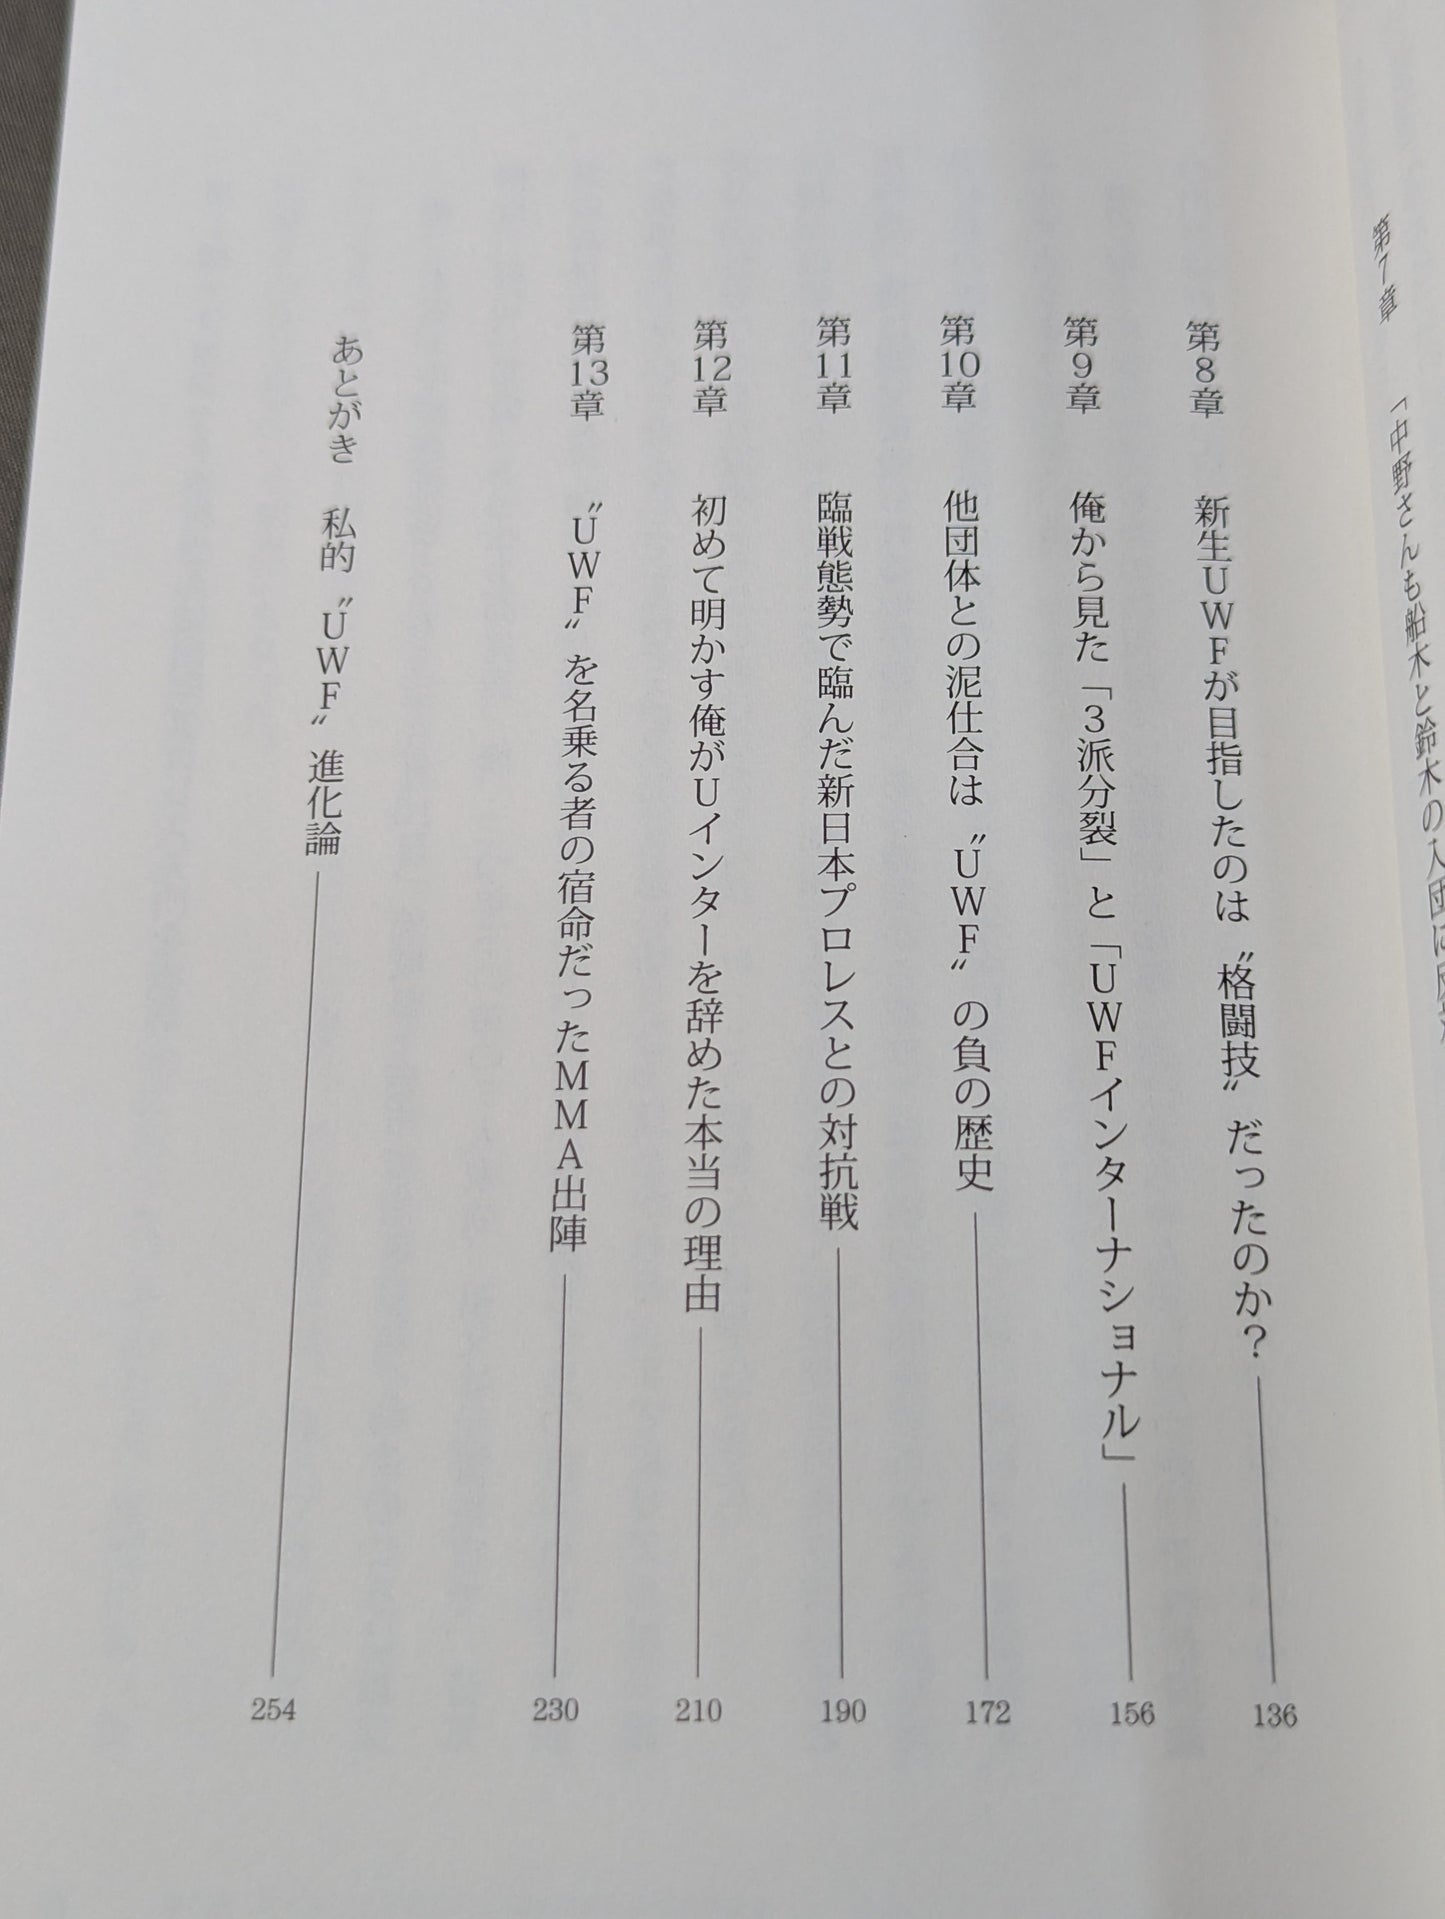 第7章　「中野さんも船木と鈴木の入団に
第8章　新生UWFが目指したのは〝格闘技〟だったのか？　136
第9章　俺から見た「3派分裂」と「UWFインターナショナル」　156
第10章　他団体との泥仕合は〝UWF〟の負の歴史　172
第11章　臨戦態勢で臨んだ新日本プロレスとの対抗戦　190
第12章　初めて明かす俺がUインターを辞めた本当の理由　210
第13章　〝UWF〟を名乗る者の宿命だったMMA出陣　230
あとがき　私的〝UWF〟進化論　254